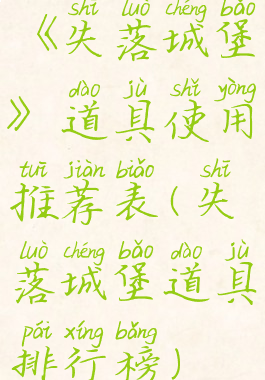 shī luò chéng bǎo
《失落城堡
dào jù shǐ yòng
》道具使用
tuī jiàn biǎo shī
推荐表(失
luò chéng bǎo dào jù
落城堡道具
pái xíng bǎng
排行榜)